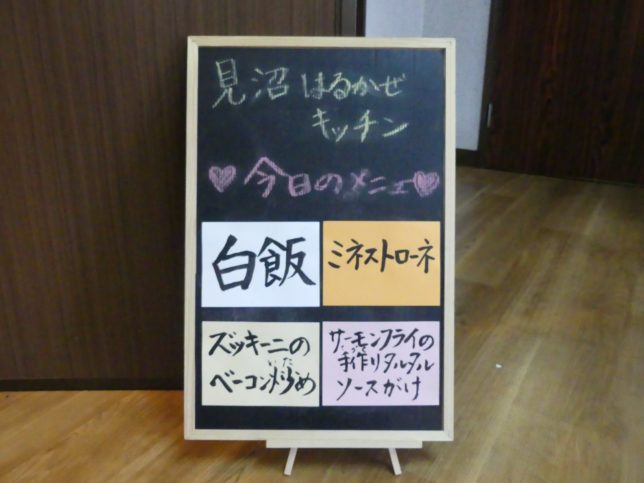 見沼 はるかぜ
キッチン
♥今日のメニュー♥
白飯
ミネストローネ
ズッキーニの
ベーコン炒め
サーモンフライの
手作りタルタル
ソースがけ